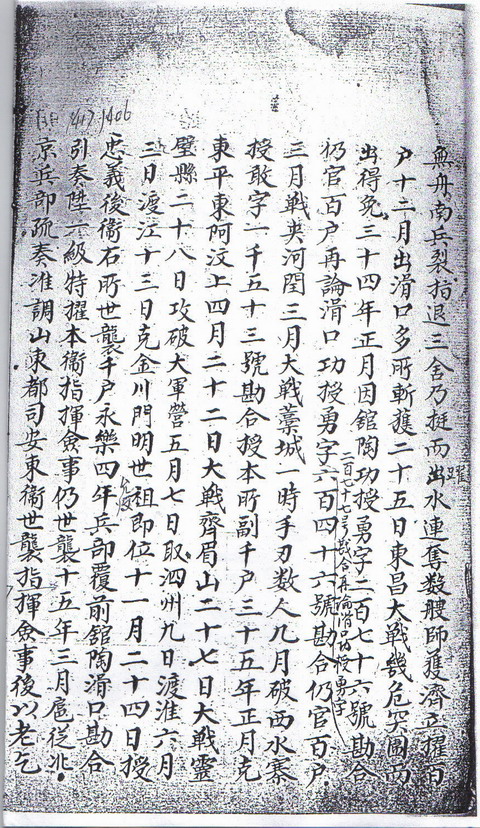 無舟南兵裂指退三舍乃挺而出水連奪数艘師獲濟立擢百
躍
户十二月出滑口多所斬獲二十五日東昌大戦幾危突圍而
出得免三十四年正月因舘陶功授勇字二百七十六號勘合
仍官百户再論滑口功授勇字六百四十六號勘合仍官百户
三月戦夾河閏三月大戦藁城一時手刃数人九月破西水寨
授敢字一千五十三號勘合授本所副千户三十五年正月克
東平東阿汶上四月二十二日大戦齊眉山二十七日大戦靈
璧縣二十八日攻破大軍營五月七日取泗州九日渡淮六月
三日渡江十三日克金川門明世祖即位十一月二十四日授
忠義後衛右所世襲千户永樂四年兵部覆前舘陶滑口勘合
1406
引奏陞六級特擢本衛指揮僉事仍世襲十五年三月扈從北
1417
京兵部疏奏准調山東都司安東衛世襲指揮僉事後以老乞